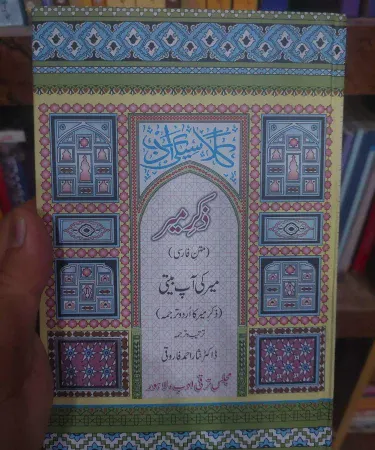 کلاسیکی ادب
ذکرِ میر
(متن فارسی)
میر کی آپ بیتی
(ذکر میر کا اردو ترجمہ)
ترتیب و ترجمہ
ڈاکٹر نثار احمد فاروقی
مجلس ترقی ادب، لاہور